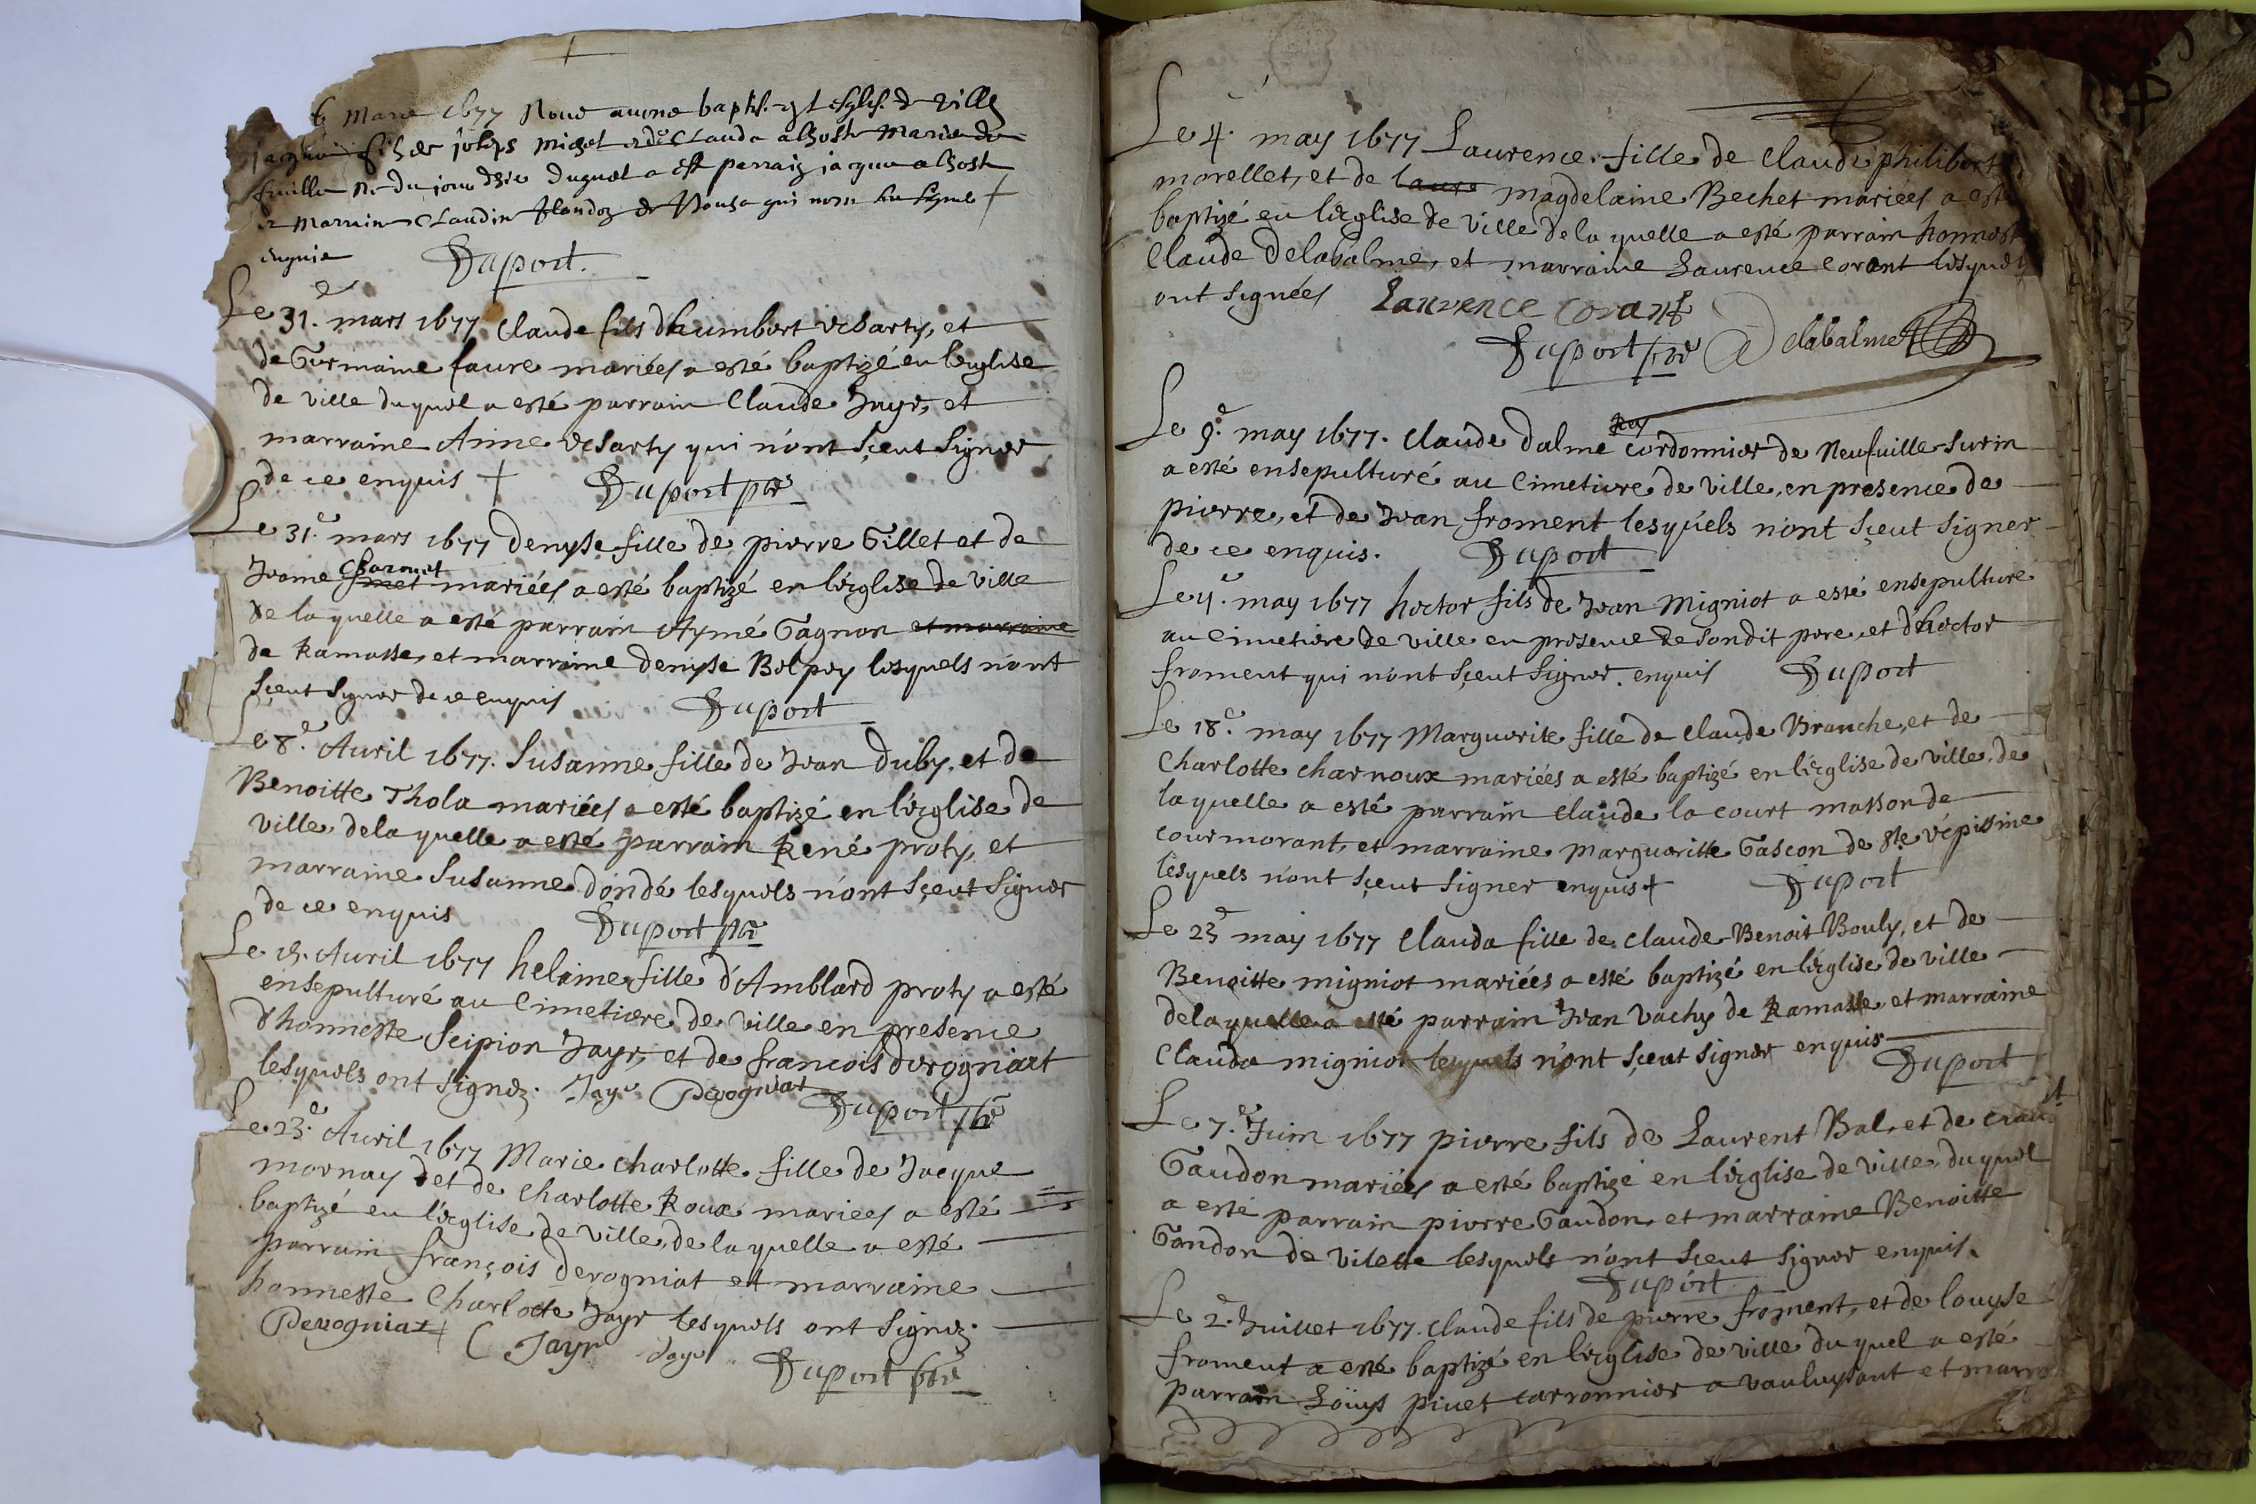 6 Mars 1677 Nous avons baptisé en l'esglise de ville
jacque fils de joseps michet et de Clauda alhoste Maries de
ville né du jour d'hier duquel a est parrain jacque alhoste
et Marrine Claudine qui n'ont sceu signe
enquis Duport.
Le 31.e mars 1677 Claude fils d'humbert vcharty, et
de Germaine faure mariées a esté baptizé en leuglise
de ville duquel a esté parrain Claude Jayr, et
marraine Anne vcharty qui n'ont sçeut signer
de ce enquis Duport pbr
Le 31.e mars 1677 denyse fille de pierre Gillet et de
Charnet
Jeanne mariées a esté baptizé en l'esglise de ville
de laquelle a esté parrain Aymé Gagnon et marraine
de Ramasse, et marraine denyse Bolpoy lesquels n'ont
sçeut signer de ce enquis Duport
Le 8.e Auril 1677. Susanne fille de Jean duby. et de
Benoitte Thola mariées a esté baptizé en l'esglise de
ville. de laquelle a esté parrain René proty, et
marraine Susanne dondé lesquels n'ont sçeut signer
de ce enquis Duport pbr
Le Auril 1677 helaine fille d'Amblard proty a esté
ensepulturé au Cimetiere de ville en presence
d'honneste Scipion Jayr, et de francois derogniat
lesquels ont signez. Jayr Derogniat Duport pbr
Le 23.e Auril 1677 Marie charlotte fille de Jacque
mornay et de charlotte Roux mariees a esté
baptizé en l'esglise de ville. de laquelle a esté
parrain françois derogniat et marraine
honneste Charlotte Jayr lesquels ont signez.
Derogniat C Jayr Jayr Duport pbr
Le 4.e may 1677 Laurence. fille de Claude philibert
morellet, et de laure magdelaine Bechet mariees a esté
baptizé en l'esglise de ville de la quelle a esté parrain honneste
Claude Delabalme, et marraine Laurence corant lesquels
ont signées Laurence corant
Duport pbr Delabalme
Le 9.e may 1677. Claude dalme cordonnier de Neufuille surin
a esté ensepulturé au Cimetiere de ville. en presence de
pierre, et de Jean froment lesquels n'ont sçeut signer
de ce enquis. Duport
Le may 1677 hector fils de Jean migniot a esté ensepulturé
au Cimetiere de ville en presence de sondit pere, et d'hector
froment qui n'ont sçeut signer. enquis Duport
Le 18.e may 1677 Marguerite fille de Claude Branche, et de
Charlotte charnoux mariées a esté baptizé en l'esglise de ville. de
laquelle a esté parrain claude la court masson de
courmorant, et marraine Margueritte Gascon de Ste vépissine
lesquels n'ont sçeut signer enquis Duport
Le 23e may 1677 Clauda fille de Claude Benoit Bouly, et de
Benoitte migniot mariées a esté baptizé en l'esglise de ville
de laquelle a esté parrain Jean Vachy de Ramasse et marraine
Clauda migniot lesquels n'ont sçeut signer enquis Duport
Le 7.e Juin 1677 pierre fils de Laurent Bal, et de
Gaudon mariées a esté baptizé en l'esglise de ville. duquel
a esté parrain pierre Gaudon, et marraine Benoitte
Gandon de vilette lesquels n'ont sçeut signer enquis.
Duport
Le 2.e Juillet 1677. Claude fils de pierre froment, et de louyse
froment a esté baptizé en l'esglise de ville duquel a esté
parrain Loüys piuet carronnier a vauluysant et marra